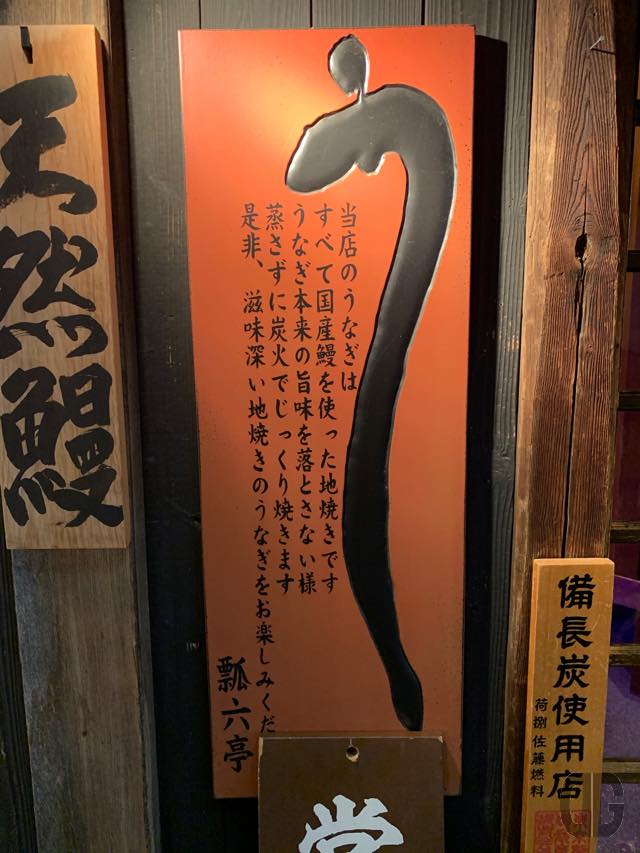 天然鰻
う
当店のうなぎは
すべて国産鰻を使った地焼きです
うなぎ本来の旨味を落とさない様
蒸さずに炭火でじっくり焼きます
是非、滋味深い地焼きのうなぎをお楽しみくだ
瓢六亭
備長炭使用店
荷捌 佐藤燃料